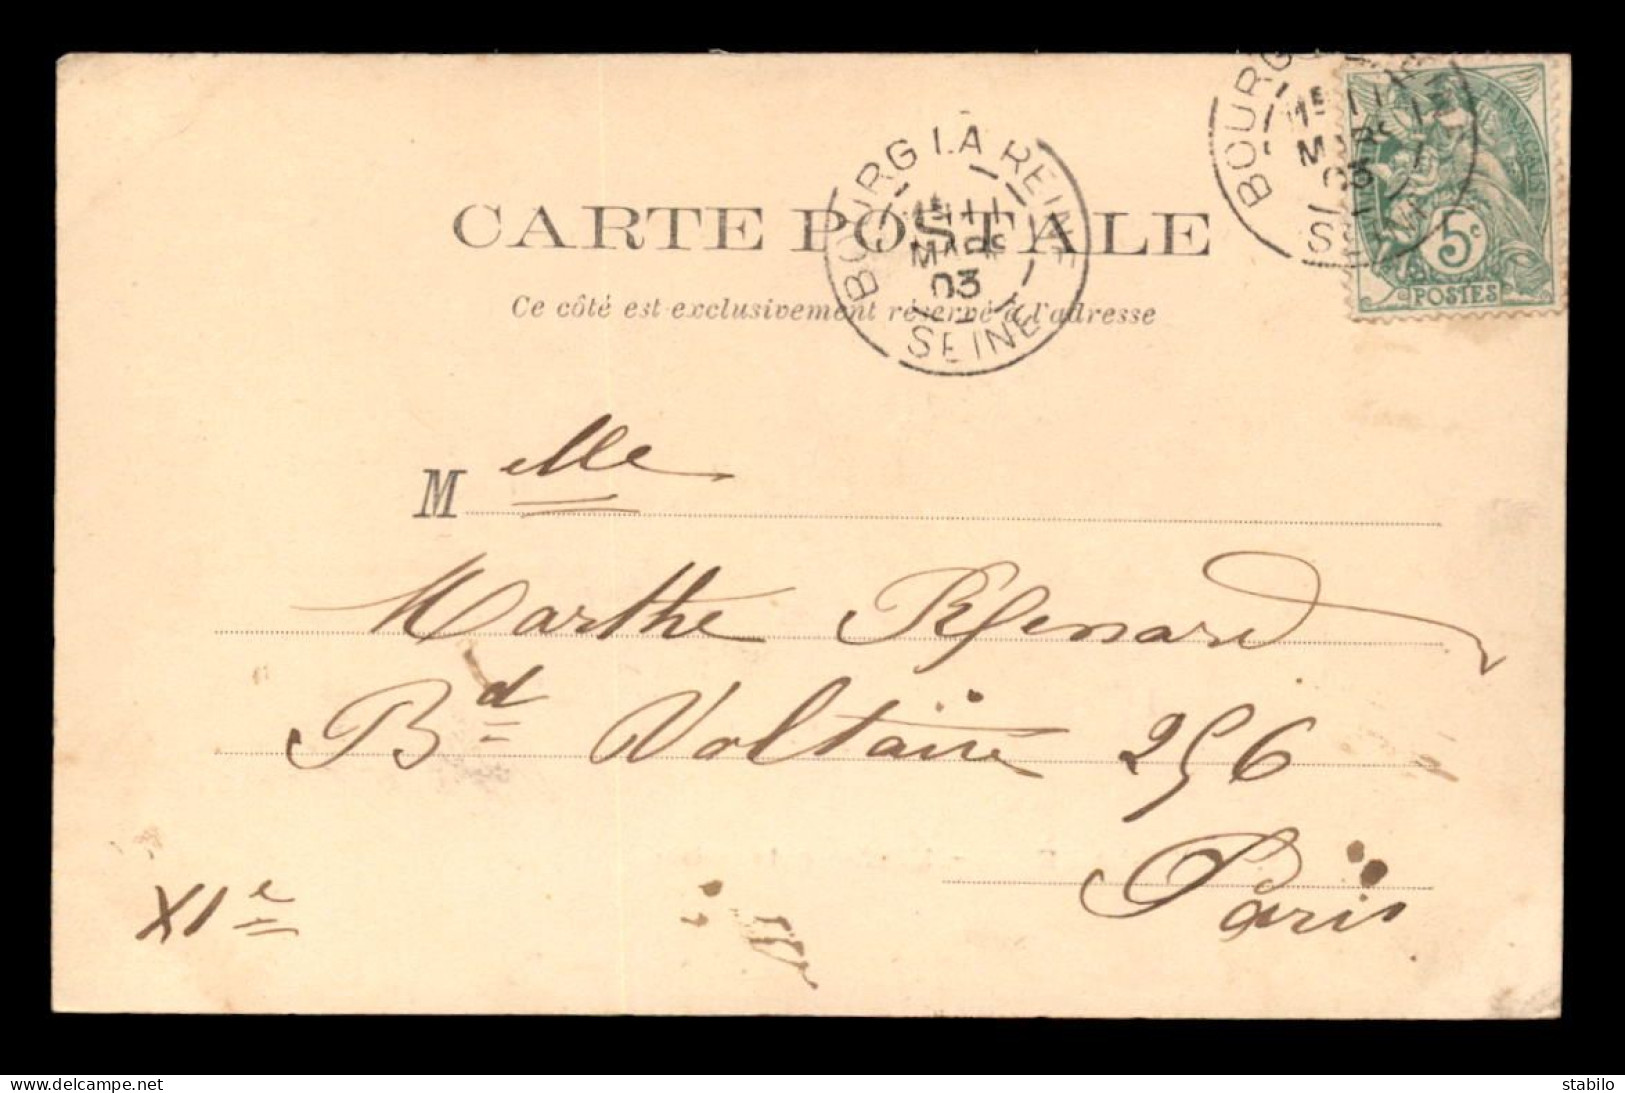 BOURG LA REINE
11
MARS
03
SEINE
BOURG
11
MARS
03
FRANÇAISE
5c
POSTES
CARTE POSTALE
Ce côté est exclusivement réservé à l'adresse
M elle
Marthe Renard
Bd Voltaire 256
Paris
XIe
www.delcampe.net
stabilo